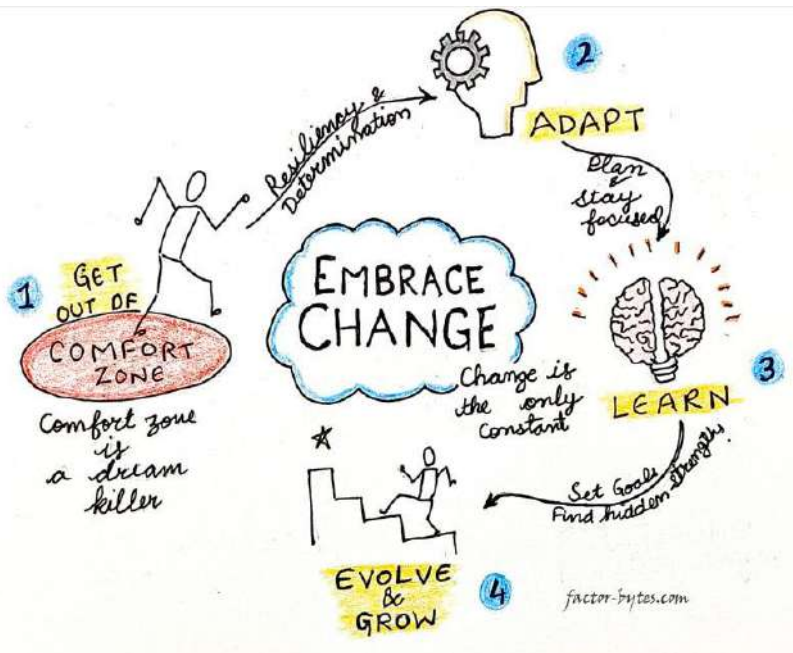 1
GET
OUT OF
COMFORT
ZONE
Comfort zone
is
a dream
killer
Resiliency &
Determination
2
ADAPT
Plan
&
Stay
focused
EMBRACE
CHANGE
Change is
the only
Constant
3
LEARN
Set Goals
Find hidden strengths
4
EVOLVE
&
GROW
factor-bytes.com